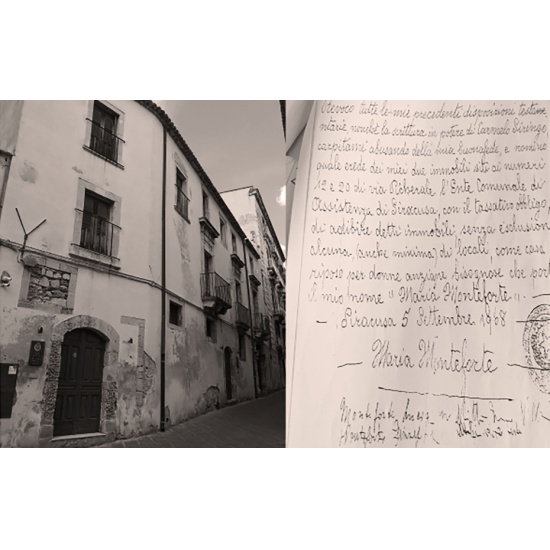 Revoco tutte le mie precedenti disposizioni testame
ntarie nonché la scrittura in potere di Carmelo
carpitami abusando della mia buonafede, e nomino
quale erede dei miei due immobili siti ai numeri
12 e 20 di via l'Ente Comunale di
Assistenza di Siracusa, con il tassativo obbligo
di adibire detti immobili, senza esclusion
alcuna, (anche minima) di locali, come casa
riposo per donne anziane bisognose che port
il mio nome "Maria Monteforte".
— Siracusa 5 Settembre 1968 —
— Maria Monteforte —